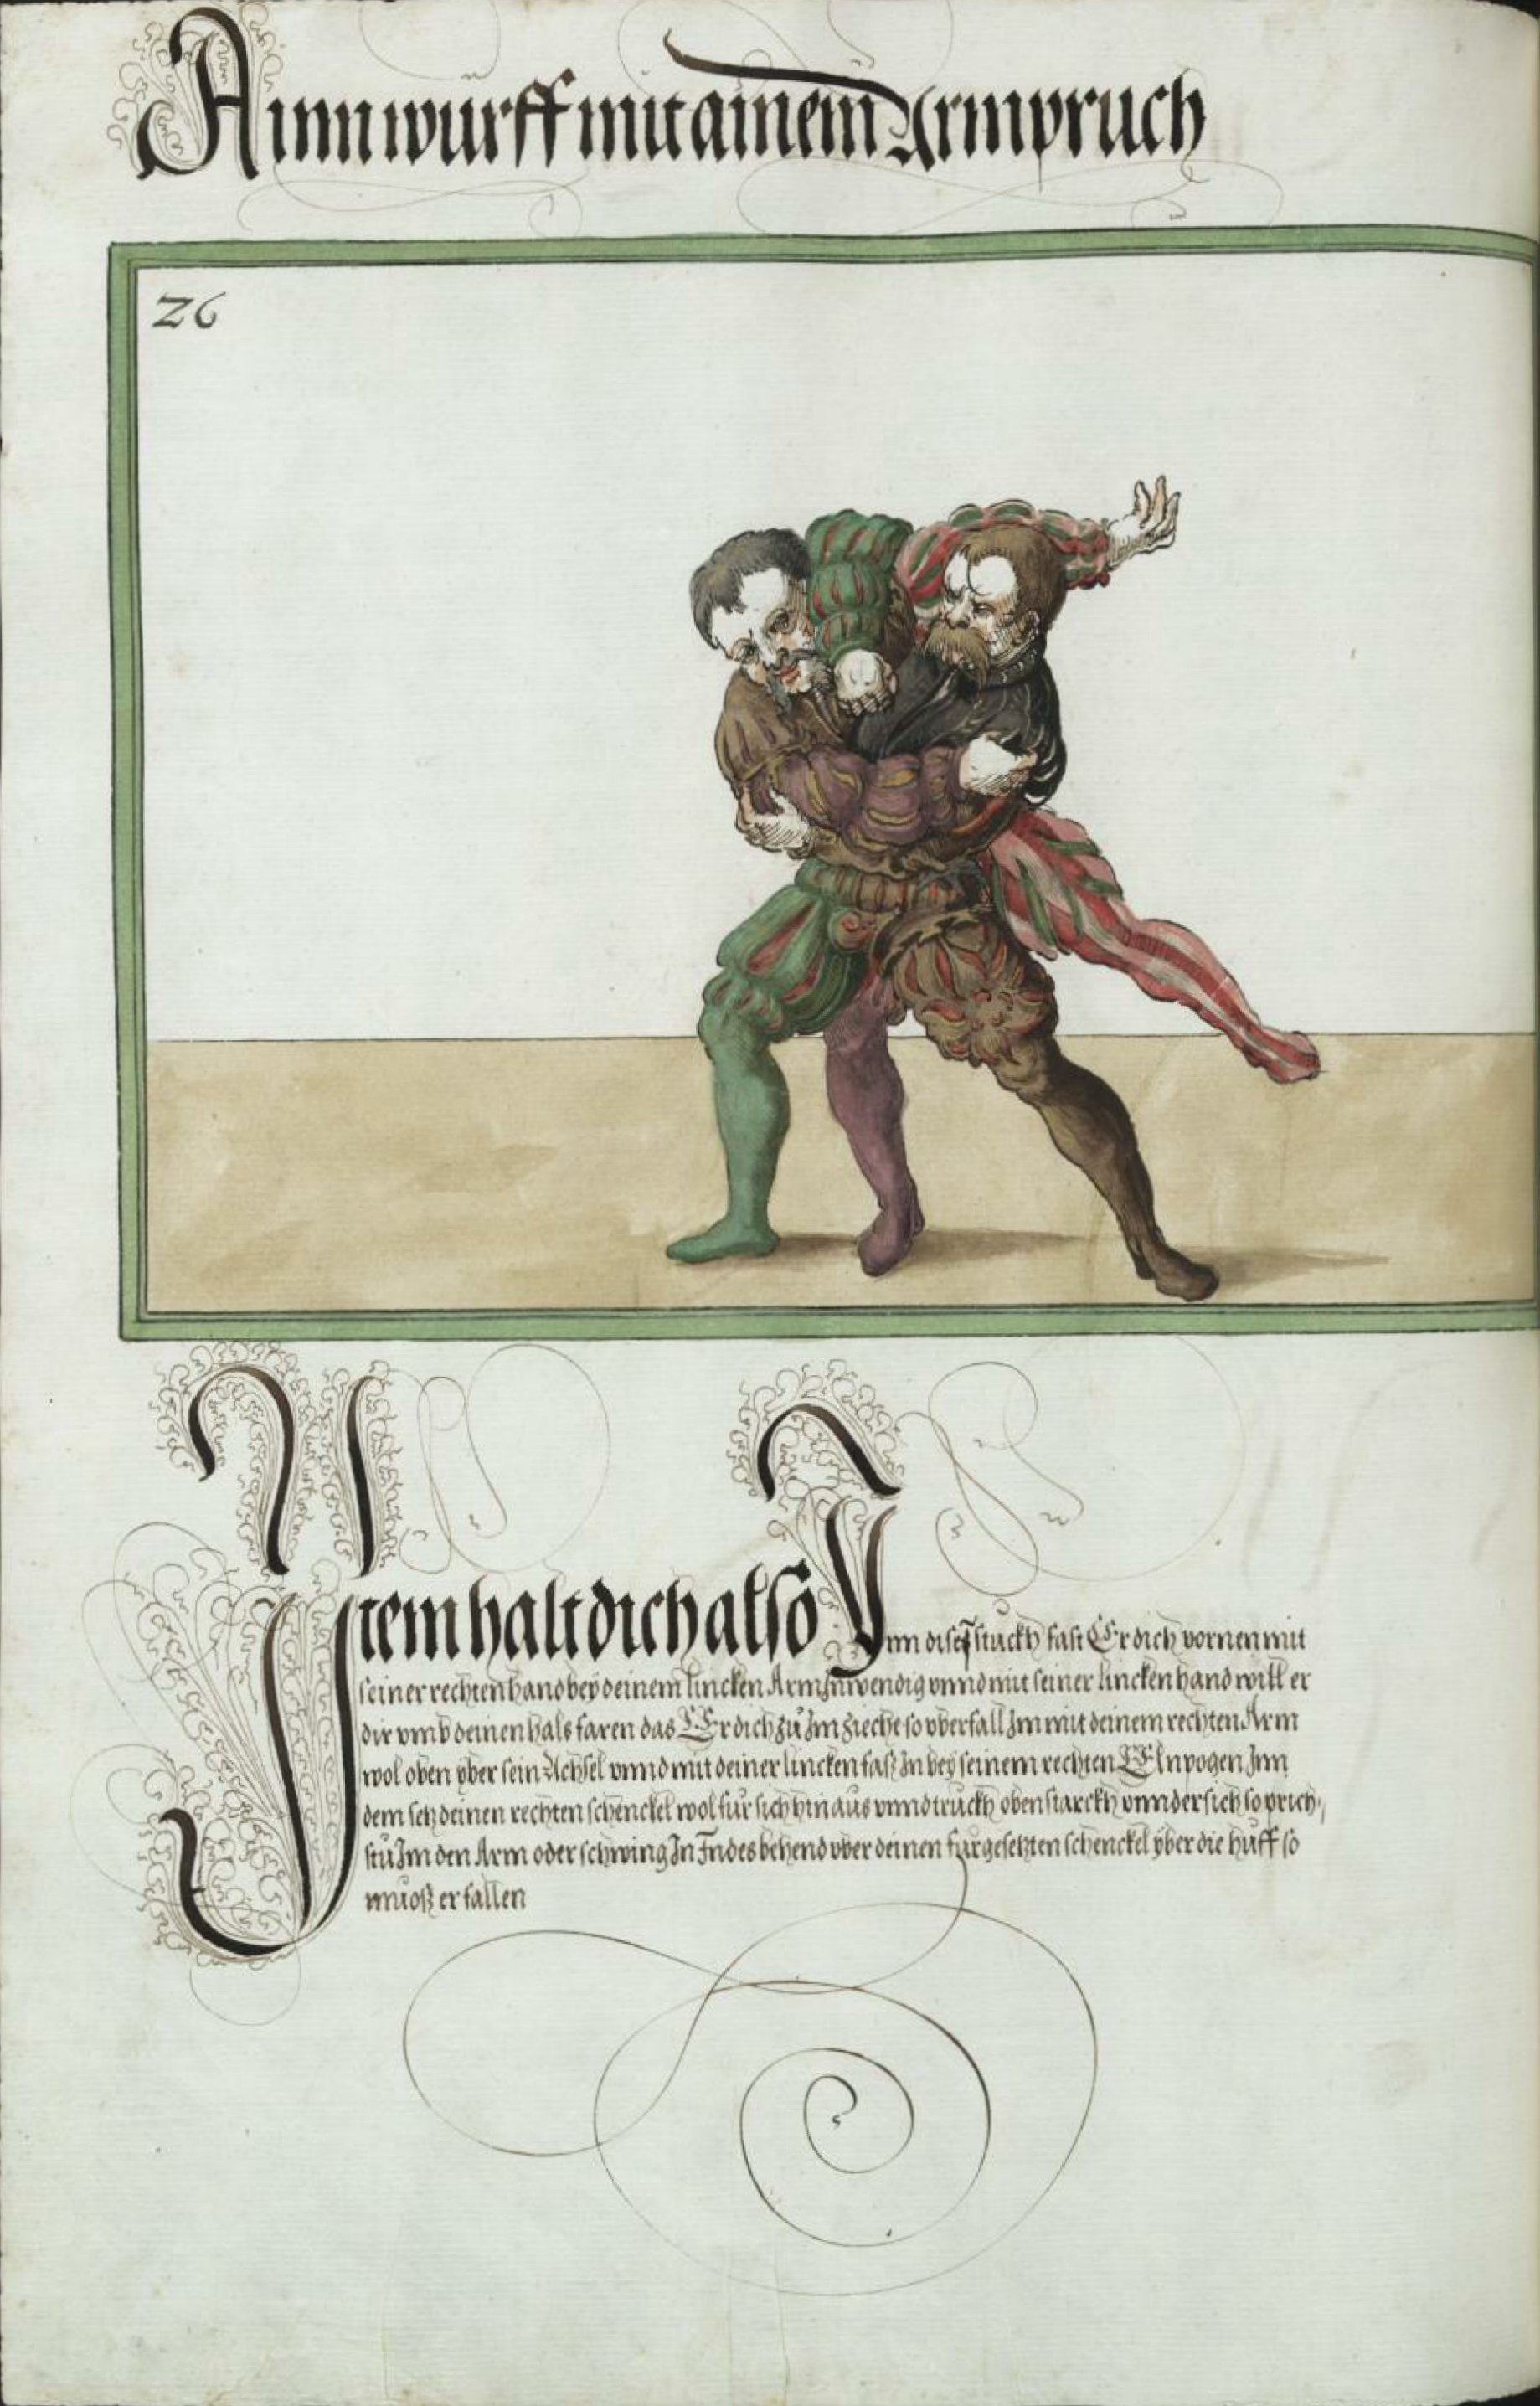 Ainn wurff mit ainem Armpruch
26
Item halt dich also Inn disem stuckh fast Er dich vornen mit
seiner rechten hand bey deinem lincken Arm Inwendig vnnd mit seiner lincken hand will er
dir vmb deinen hals faren das Er dich zů Im zieche so vberfall Im mit deinem rechten Arm
wol oben yber sein Achsel vnnd mit deiner lincken fasz In bey seinem rechten Elnpogen Inn
dem setz deinen rechten schenckel wol für sich hinaus vnnd truckh oben starckh vnndersich so prich-
stu Im den Arm oder schwing In Indes behend vber deinen fürgesetzten schenckel yber die huff so
muosz er fallen